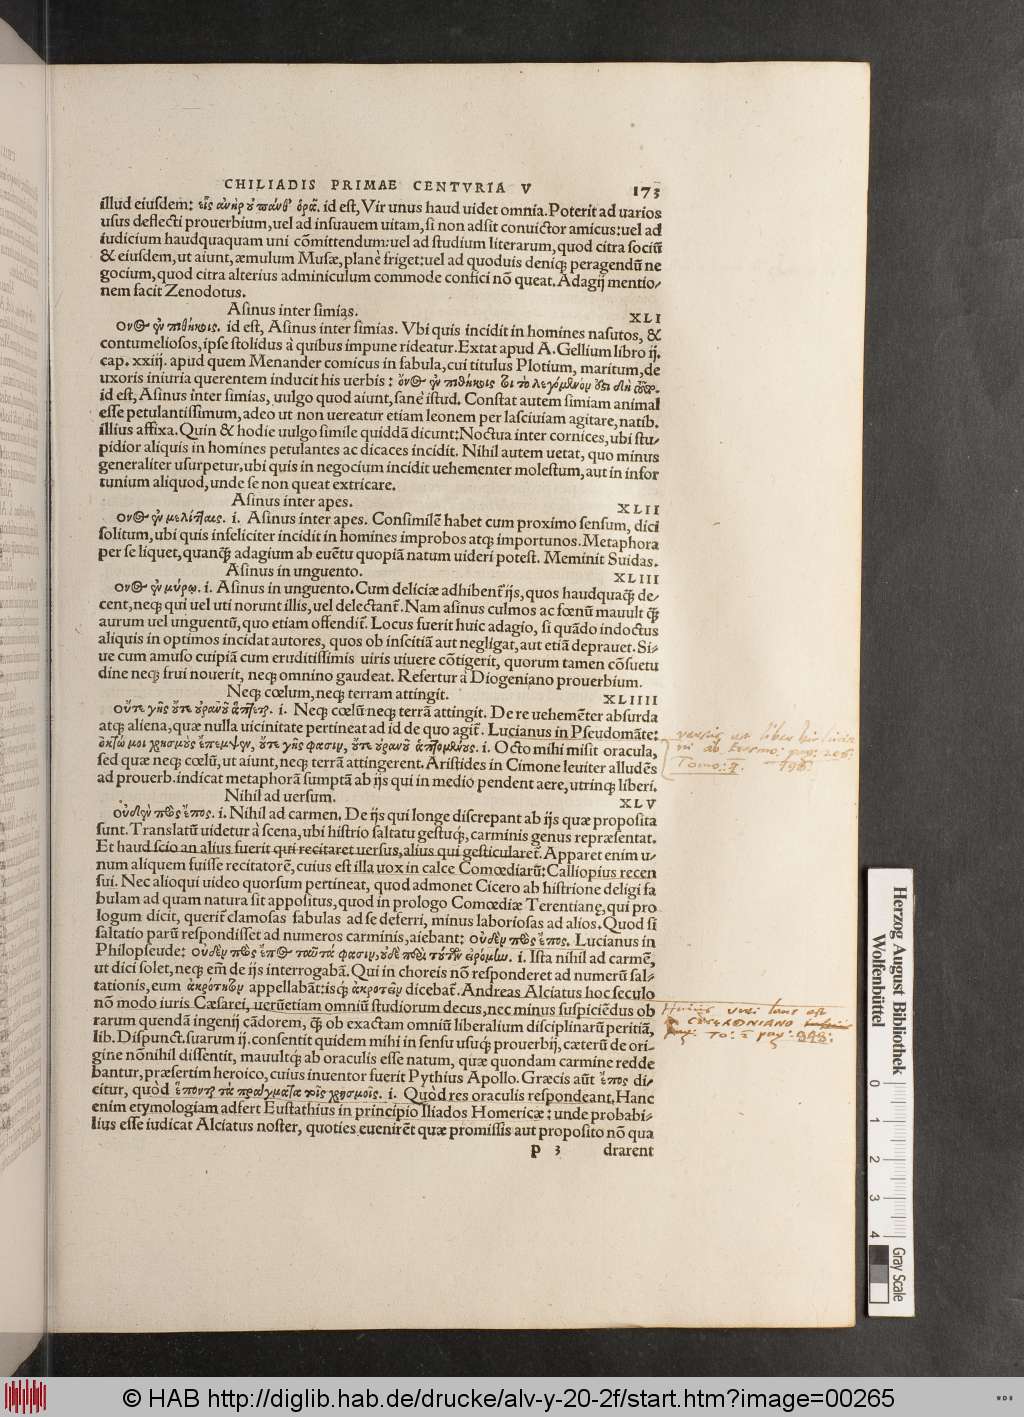 CHILIADIS PRIMAE CENTVRIA V 173
illud eiusdem: εἷς ἀνὴρ οὐ πάνθ' ὁρᾷ. id est, Vir unus haud uidet omnia. Poterit ad uarios
usus deflecti prouerbium, uel ad insuauem uitam, si non adsit conuictor amicus: uel ad
iudicium haudquaquam uni cōmittendum: uel ad studium literarum, quod citra sociū
& eiusdem, ut aiunt, æmulum Musæ, planè friget: uel ad quoduis deniqꝫ peragendū ne
gocium, quod citra alterius adminiculum commode confici nō queat. Adagij mentio-
nem facit Zenodotus.
Asinus inter simias. XLI
ὄνος ἐν πιθήκοις. id est, Asinus inter simias. Vbi quis incidit in homines nasutos, &
contumeliosos, ipse stolidus à quibus impune rideatur. Extat apud A. Gellium libro ij.
cap. xxiij. apud quem Menander comicus in fabula, cui titulus Plotium, maritum, de
uxoris iniuria querentem inducit his uerbis: ὄνος ἐν πιθήκοις
id est, Asinus inter simias, uulgo quod aiunt, sanè istud. Constat autem simiam animal
esse petulantissimum, adeo ut non uereatur etiam leonem per lasciuiam agitare, natib.
illius affixa. Quin & hodie uulgo simile quiddā dicunt: Noctua inter cornices, ubi stu-
pidior aliquis in homines petulantes ac dicaces incidit. Nihil autem uetat, quo minus
generaliter usurpetur, ubi quis in negocium incidit uehementer molestum, aut in infor
tunium aliquod, unde se non queat extricare.
Asinus inter apes. XLII
ὄνος ἐν μελίτταις. i. Asinus inter apes. Consimilē habet cum proximo sensum, dici
solitum, ubi quis infeliciter incidit in homines improbos atqꝫ importunos. Metaphora
per se liquet, quanqꝫ̄ adagium ab euētu quopiā natum uideri potest. Meminit Suidas.
Asinus in unguento. XLIII
ὄνος ἐν μύρῳ. i. Asinus in unguento. Cum deliciæ adhibent̃ ijs, quos haudquaqꝫ̄ de-
cent, neqꝫ qui uel uti norunt illis, uel delectant̃. Nam asinus culmos ac fœnū mauult qꝫ̄
aurum uel unguentū, quo etiam offendit̃. Locus fuerit huic adagio, si quādo indoctus
aliquis in optimos incidat autores, quos ob inscitiā aut negligat, aut etiā deprauet. Si-
ue cum amuso cuipiā cum eruditissimis uiris uiuere cōtigerit, quorum tamen cōsuetu
dine neqꝫ frui nouerit, neqꝫ omnino gaudeat. Refertur à Diogeniano prouerbium.
Neqꝫ cœlum, neqꝫ terram attingit. XLIIII
οὔτε γῆς οὔτε οὐρανοῦ ἅπτεται. i. Neqꝫ cœlū neqꝫ terrā attingit. De re uehemēter absurda
atqꝫ aliena, quæ nulla uicinitate pertineat ad id de quo agit̃. Lucianus in Pseudomāte:
ὀκτώ μοι χρησμοὺς ἔπεμψεν, οὔτε γῆς φασιν, οὔτε οὐρανοῦ ἁπτομένους. i. Octo mihi misit oracula,
sed quæ neqꝫ cœlū, ut aiunt, neqꝫ terrā attingerent. Aristides in Cimone leuiter alludēs
ad prouerb. indicat metaphorā sumptā ab ijs qui in medio pendent aere, utrinqꝫ liberi.
Nihil ad uersum. XLV
οὐδὲν πρὸς ἔπος. i. Nihil ad carmen. De ijs qui longe discrepant ab ijs quæ proposita
sunt. Translatū uidetur à scena, ubi histrio saltatu gestuqꝫ, carminis genus repræsentat.
Et haud scio an alius fuerit qui recitaret uersus, alius qui gesticularet̃. Apparet enim u-
num aliquem fuisse recitatorē, cuius est illa uox in calce Comœdiarū: Calliopius recen
sui. Nec alioqui uideo quorsum pertineat, quod admonet Cicero ab histrione deligi fa
bulam ad quam natura sit appositus, quod in prologo Comœdiæ Terentianę, qui pro
logum dicit, querit̃ clamosas fabulas ad se deferri, minus laboriosas ad alios. Quod si
saltatio parū respondisset ad numeros carminis, aiebant: οὐδὲν πρὸς ἔπος. Lucianus in
Philopseude: οὐδὲν πρὸς ἔπος ταῦτά φασιν, i. Ista nihil ad carmē,
ut dici solet, neqꝫ em̄ de ijs interrogabā. Qui in choreis nō responderet ad numerū sal-
tationis, eum appellabāt: isqꝫ dicebat̃. Andreas Alciatus hoc seculo
nō modo iuris Cæsarei, uerūetiam omniū studiorum decus, nec minus suspiciēdus ob
rarum quendā ingenij cādorem, qꝫ̄ ob exactam omniū liberalium disciplinarū peritiā,
lib. Dispunct. suarum ij. consentit quidem mihi in sensu usuqꝫ prouerbij, cæterū de ori-
gine nōnihil dissentit, mauultqꝫ ab oraculis esse natum, quæ quondam carmine redde
bantur, præsertim heroico, cuius inuentor fuerit Pythius Apollo. Græcis aūt ἔπος di-
citur, quòd ἕπονται τὰ πράγματα τοῖς χρησμοῖς. i. Quòd res oraculis respondeant. Hanc
enim etymologiam adfert Eustathius in principio Iliados Homericæ: unde probabi-
lius esse iudicat Alciatus noster, quoties euenirēt quæ promissis aut proposito nō qua
p 3 drarent
liber
Tomo: 4. 198.
Huius
CICERONIANO
To: pag: 848.
Herzog August Bibliothek
Wolfenbüttel
0 1 2 3 4
Gray Scale
© HAB http://diglib.hab.de/drucke/alv-y-20-2f/start.htm?image=00265